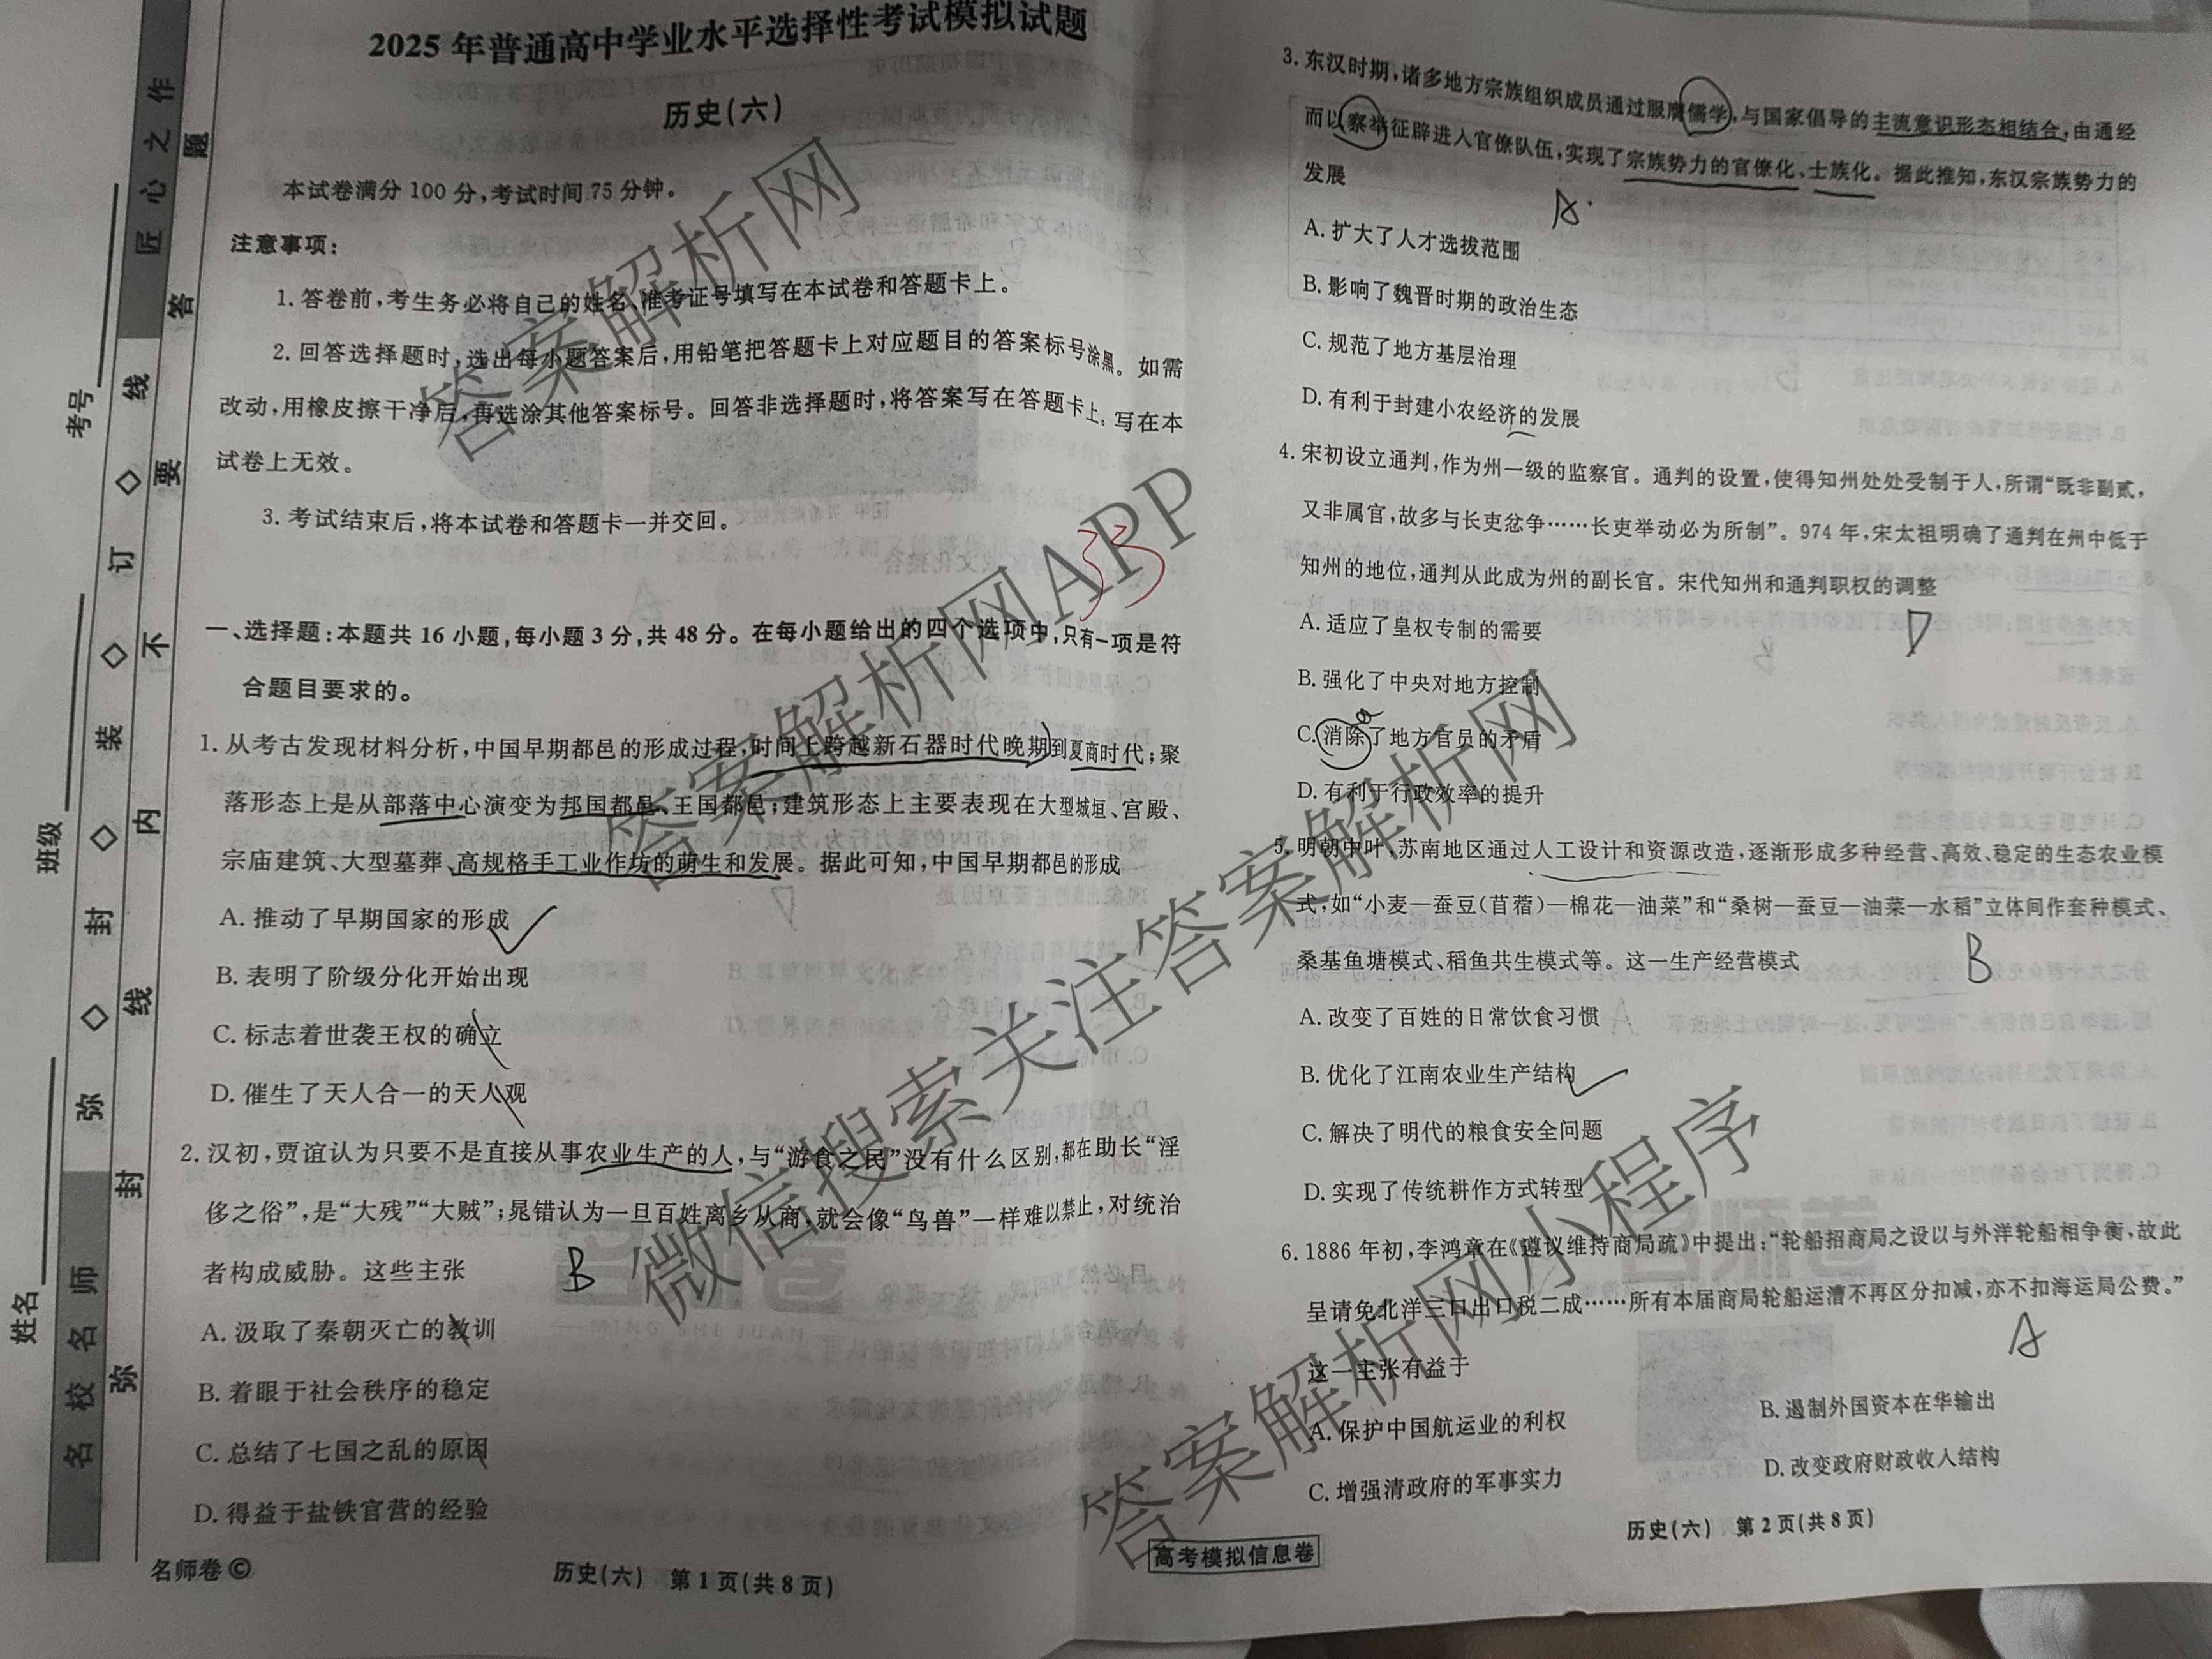 2025年普通高中学业水平选择性考试模拟试题
历史(六)
本试卷满分100分,考试时间75分钟。
注意事项:
1.答卷前,考生务必将自己的姓名、准考证号填写在本试卷和答题卡上。
2.回答选择题时,选出每小题答案后,用铅笔把答题卡上对应题目的答案标号涂黑。如需
改动,用橡皮擦干净后,再选涂其他答案标号。回答非选择题时,将答案写在答题卡上。写在本
试卷上无效。
3.考试结束后,将本试卷和答题卡一并交回。
33
一、选择题:本题共16小题,每小题3分,共48分。在每小题给出的四个选项中,只有一项是符
合题目要求的。
1.从考古发现材料分析,中国早期都邑的形成过程,时间上跨越新石器时代晚期到夏商时代;聚
落形态上是从部落中心演变为邦国都邑、王国都邑;建筑形态上主要表现在大型城垣、宫殿、
宗庙建筑、大型墓葬、高规格手工业作坊的萌生和发展。据此可知,中国早期都邑的形成
A.推动了早期国家的形成
B.表明了阶级分化开始出现
C.标志着世袭王权的确立
D.催生了天人合一的天人观
2.汉初,贾谊认为只要不是直接从事农业生产的人,与“游食之民”没有什么区别,都在助长“淫
侈之俗”,是“大残”“大贼”;晁错认为一旦百姓离乡从商,就会像“鸟兽”一样难以禁止,对统治
者构成威胁。这些主张
B
A.汲取了秦朝灭亡的教训
B.着眼于社会秩序的稳定
C.总结了七国之乱的原因
D.得益于盐铁官营的经验
名师卷©
历史(六) 第1页(共8页)
3.东汉时期,诸多地方宗族组织成员通过服膺儒学,与国家倡导的主流意识形态相结合,由通经
而以察举征辟进入官僚队伍,实现了宗族势力的官僚化、士族化。据此推知,东汉宗族势力的
发展
A.
A.扩大了人才选拔范围
B.影响了魏晋时期的政治生态
C.规范了地方基层治理
D.有利于封建小农经济的发展
4.宋初设立通判,作为州一级的监察官。通判的设置,使得知州处处受制于人,所谓“既非副贰,
又非属官,故多与长吏忿争……长吏举动必为所制”。974年,宋太祖明确了通判在州中低于
知州的地位,通判从此成为州的副长官。宋代知州和通判职权的调整
D
A.适应了皇权专制的需要
B.强化了中央对地方控制
C.消除了地方官员的矛盾
D.有利于行政效率的提升
5.明朝中叶,苏南地区通过人工设计和资源改造,逐渐形成多种经营、高效、稳定的生态农业模
式,如“小麦—蚕豆(苜蓿)—棉花—油菜”和“桑树—蚕豆—油菜—水稻”立体间作套种模式、
桑基鱼塘模式、稻鱼共生模式等。这一生产经营模式
B
A.改变了百姓的日常饮食习惯
B.优化了江南农业生产结构
C.解决了明代的粮食安全问题
D.实现了传统耕作方式转型
6.1886年初,李鸿章在《遵议维持商局疏》中提出:“轮船招商局之设以与外洋轮船相争衡,故此
呈请免北洋三口出口税二成……所有本届商局轮船运漕不再区分扣减,亦不扣海运局公费。”
这一主张有益于
A
A.保护中国航运业的利权
B.遏制外国资本在华输出
C.增强清政府的军事实力
D.改变政府财政收入结构
高考模拟信息卷
历史(六) 第2页(共8页)
匠心之作
名校名师
考号
班级
姓名
弥◇封◇装◇订◇线
弥封线内不要答题
答案解析网
微信搜索关注答案解析网
答案解析网APP
答案解析网小程序
名师卷
MING SHI JUAN